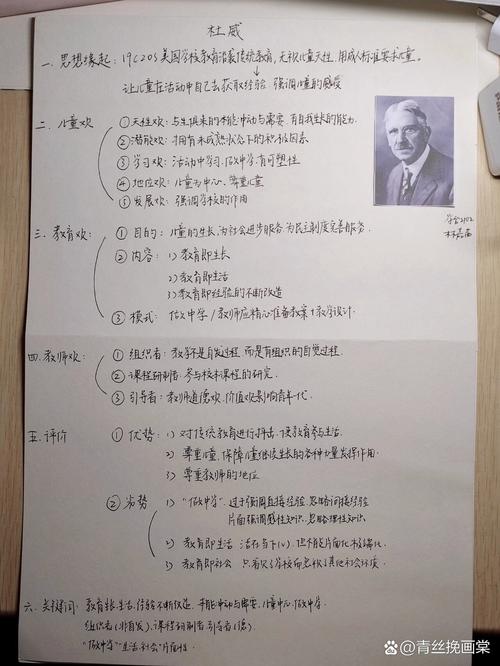 杜威
一.思想缘起:1920S美国学校教育沿袭传统教育,无视儿童天性,用成人标准要求儿童。
让儿童在活动中自己去获取经验 强调儿童的感受
二.儿童观
①天性观:与生俱来的本能冲动与需要,有自我生长的能力.
②潜能观:拥有未成熟状态下的积极因素
③学习观:活动中学习.做中学.有可塑性
④地位观:儿童为中心,尊重儿童
⑤发展观:强调学校的作用
学会2102
三.教育观:
①目的:儿童的生长,为社会进步服务,为民主制度完善服务.
②内容:1)教育即生长
2)教育即生活
3)教育即经验的不断改造
③模式:做中学/教师应精心准备教案+教学设计.
四.教师观:
①组织者:教学不是自发过程,而是有组织的自觉过程.
②课程研制者:参与校本课程的研究.
③引导者:教师道德观、价值观影响青年一代.
五.评价
①优势:1)对传统教育进行抨击,使教育参与生活.
2)尊重儿童,保障儿童继续生长的各种力量发挥作用.
3)尊重教师的地位
②劣势
1)"做中学".过于强调直接经验.忽略间接经验
片面强调感性知识.忽略理性知识
2)教育即生活.活在当下(√).但不能片面化极端化.
3)教育即社会.只看见了学校而忽视了其他社会环境.
六.关键词:教育生长、生活、经验不断改造、本能冲动与需要、儿童中心、做中学.
组织者(非自发)、课程研制者、引导者(德).
"做中学"生活、社会"片面性"
@青丝挽画棠